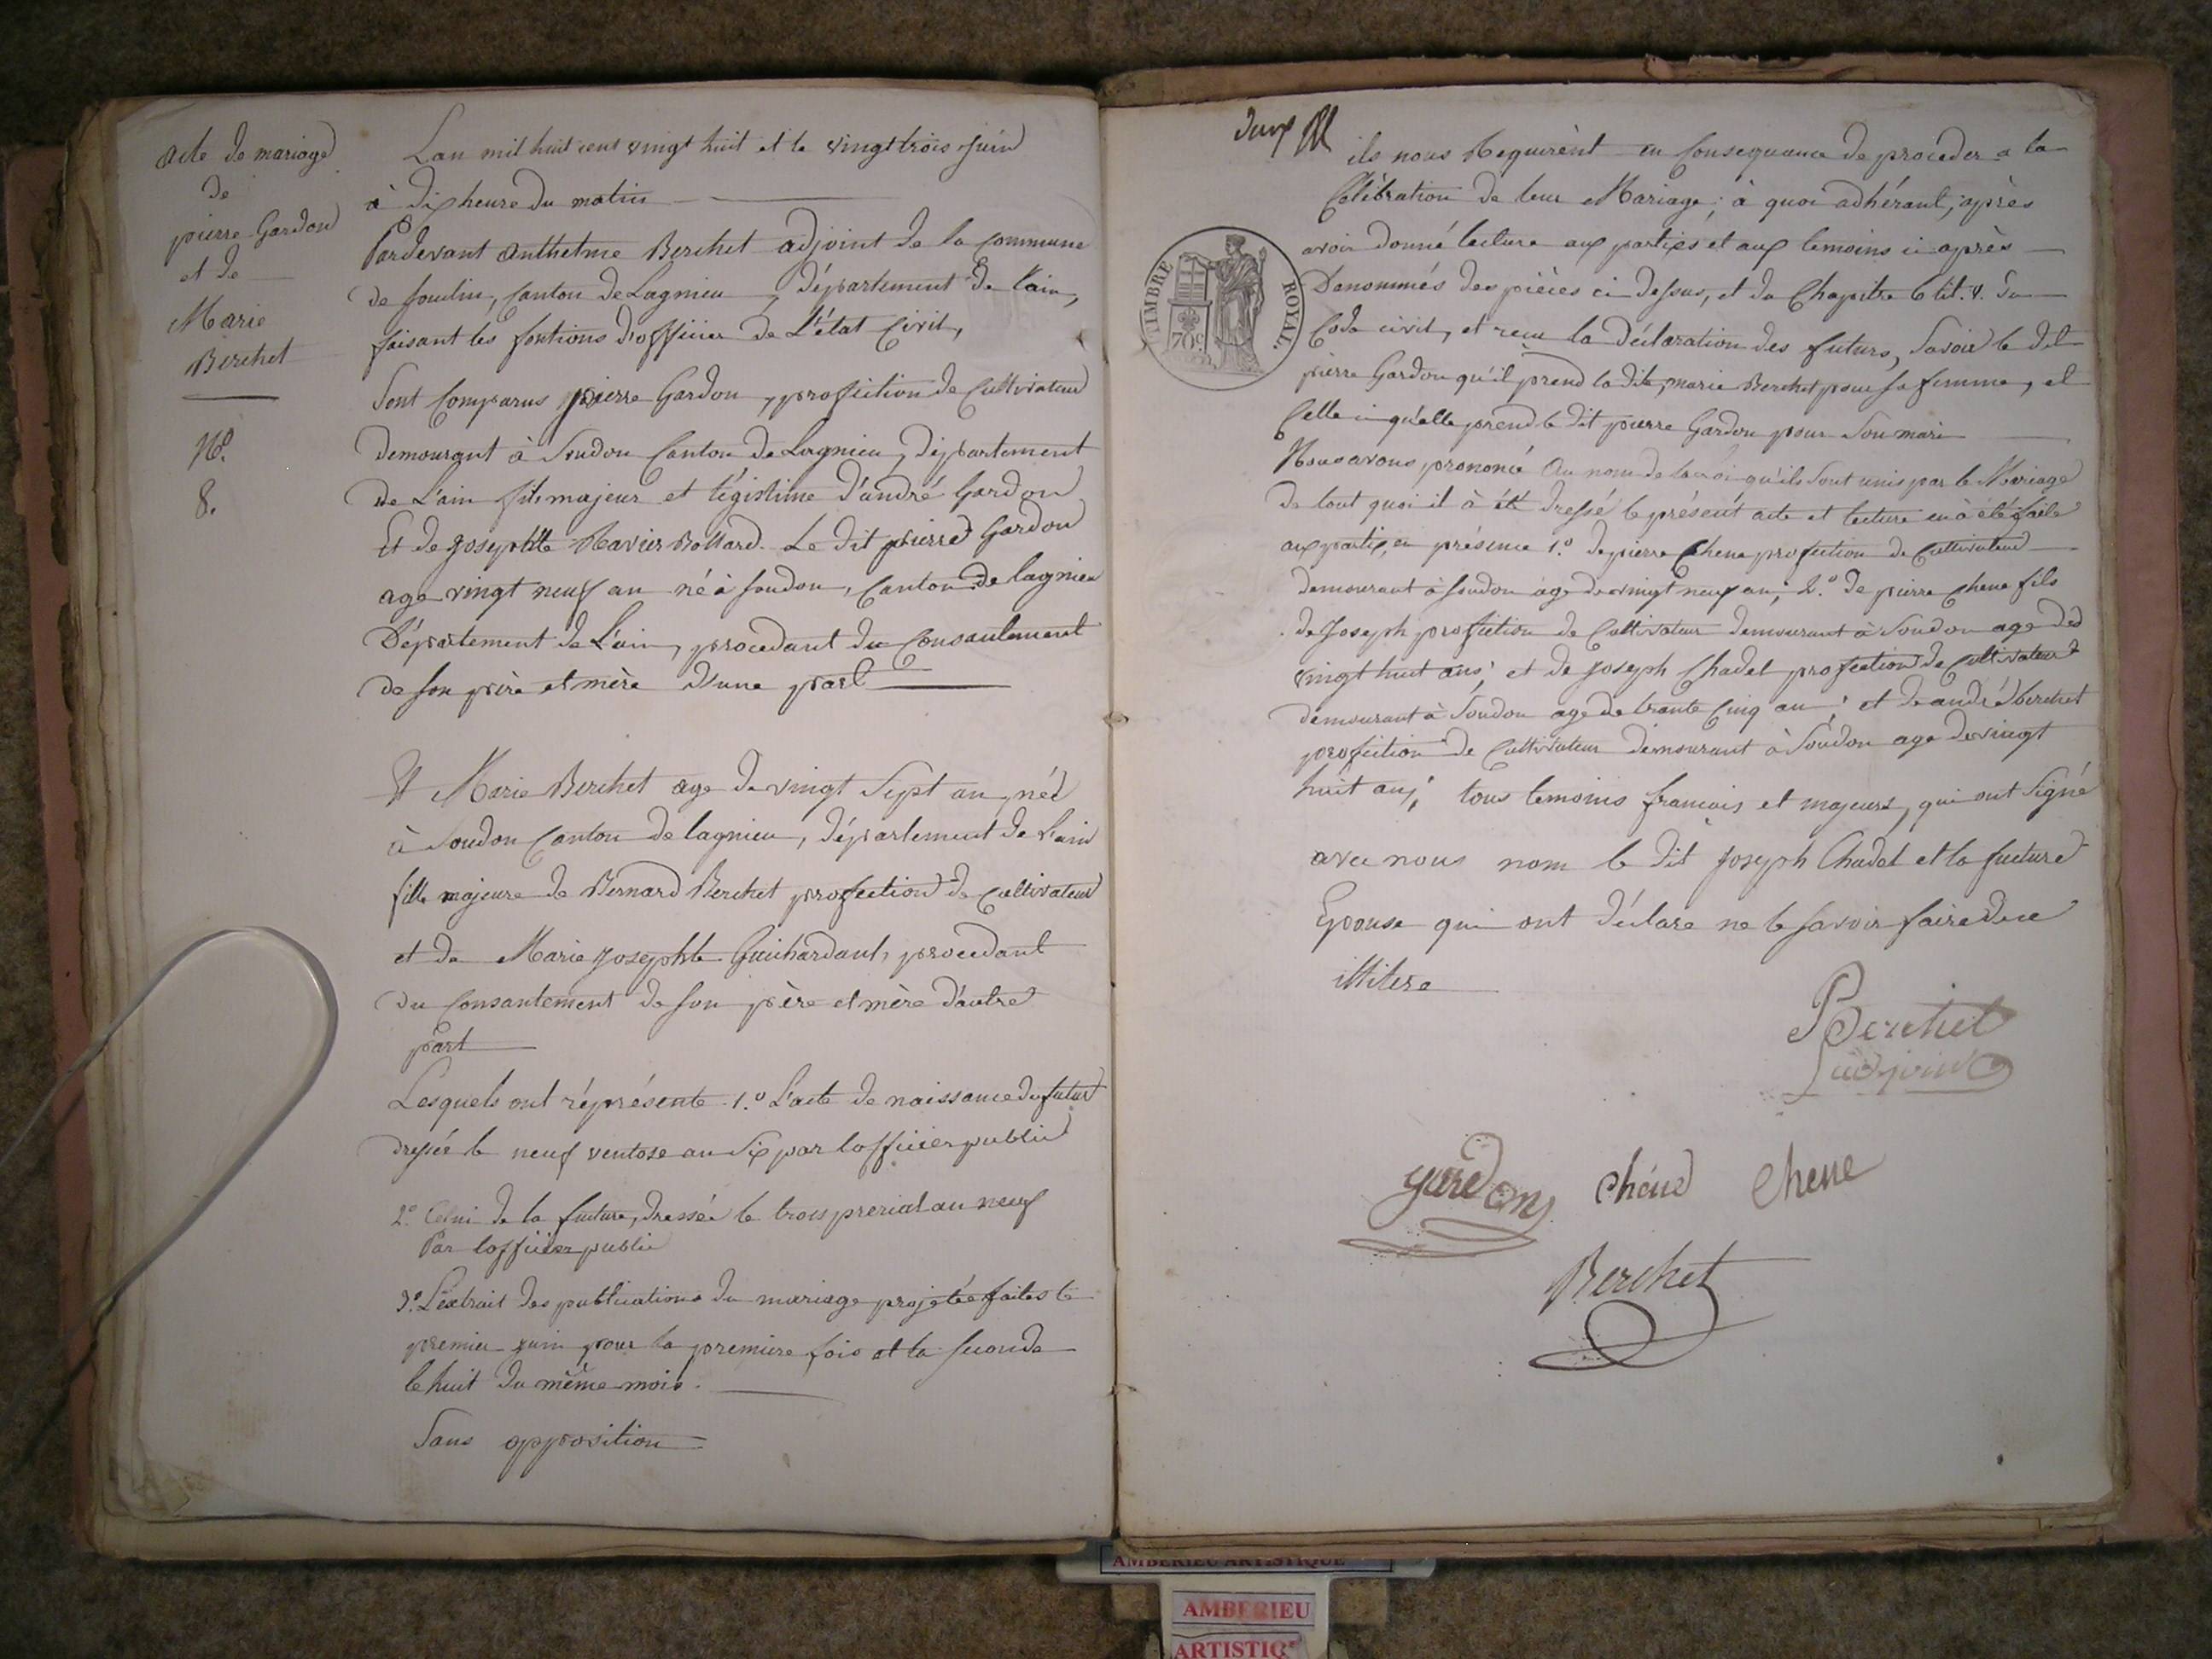 acte de mariage
de
pierre Gardon
et de
Marie
Berchet
No.
8.
Lan mil huit cent vingt huit et le vingt trois juin
à dix heure du matin
Pardevant Anthelme Berchet adjoint de la commune
de Soudon, Canton de Lagnieu, département de l'ain,
faisant les fontions d'officier de L'état Civil,
Sont Comparus pierre Gardon, profiction de Cultivateur
demourant à Soudon Canton de Lagnieu, département
de L'ain fils majeur et légistime d'andré Gardon
Et de josephte Ravier Bollard. Le dit pierre Gardon
age vingt neuf an né à Soudon, Canton de lagnieu
Département de L'ain, procedant du Consantement
de son père et mère d'une part
Et Marie Berchet age de vingt Sept an, née
à Soudon Canton de lagnieu, département de L'ain
fille majeure de Bernard Berchet profection de Cultivateur
et de Marie Josephte Guichardant, procedant
du Consantement de son père et mère d'autre
part
Lesquels ont réprésente 1.o L'acte de naissance du futur
dressée le neuf ventose an Six par lofficier public
2.o Celui de la future, dressée le trois prerial an neuf
Par lofficier public
3.o L'extrait des publications du mariage projetée faites le
premier juin pour la premiere fois et la seconde
le huit du même mois.
Sans opposition
deux
ils nous Requirènt en Consequance de proceder a la
Célébration de leur Mariage; à quoi adhérant, après
avoir donné lecture aux parties et aux temoins ci après
Dénommés des pièces ci dessus, et du Chapitre 6 tit. V. du
Code civil, et reçu la déclaration des futurs, Savoir le dit
pierre Gardon qu'il prend la dite marie Berchet pour sa femme, et
Celle ci qu'elle prend le dit pierre Gardon pour Son mari
Nous avons prononcé Au nom de la loi qu'ils Sont unis par le Mariage
de tout quoi il à été dressé le présent acte et lecture en à été faite
aux partis, en présence 1.o de pierre Chene profection de Cultivateur
demourant à Soudon âgé de vingt neuf an; 2.o de pierre Chene fils
de Joseph profection de Cultivateur demourant à Soudon age de
vingt huit ans; et de joseph Chadel profection de Cultivateur
demourant à Soudon age de trante Cinq an; et de andré berchet
profection de Cultivateur demourant à Soudon age de vingt
huit an; tous temoins francais et majeurs, qui ont Signé
avec nous nom le dit joseph Chadel et la future
Epouse qui ont déclare ne le savoir faire de ce
illitere
TIMBRE ROYAL.
70c
Berchet
L'adjoint
gardon Chéne Chene
Berchet
AMBERIEU ARTISTIQUE
AMBERIEU
ARTISTIQ